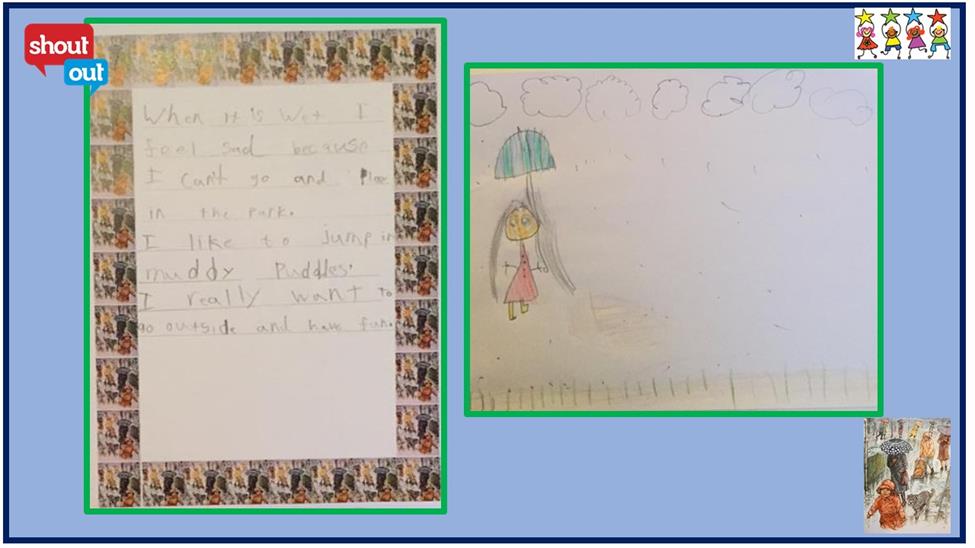 shout
out
When it is wet I
feel sad because
I can't go and Plae
in the Park.
I like to jump in
muddy Puddles.
I really want to
go outside and have fun.